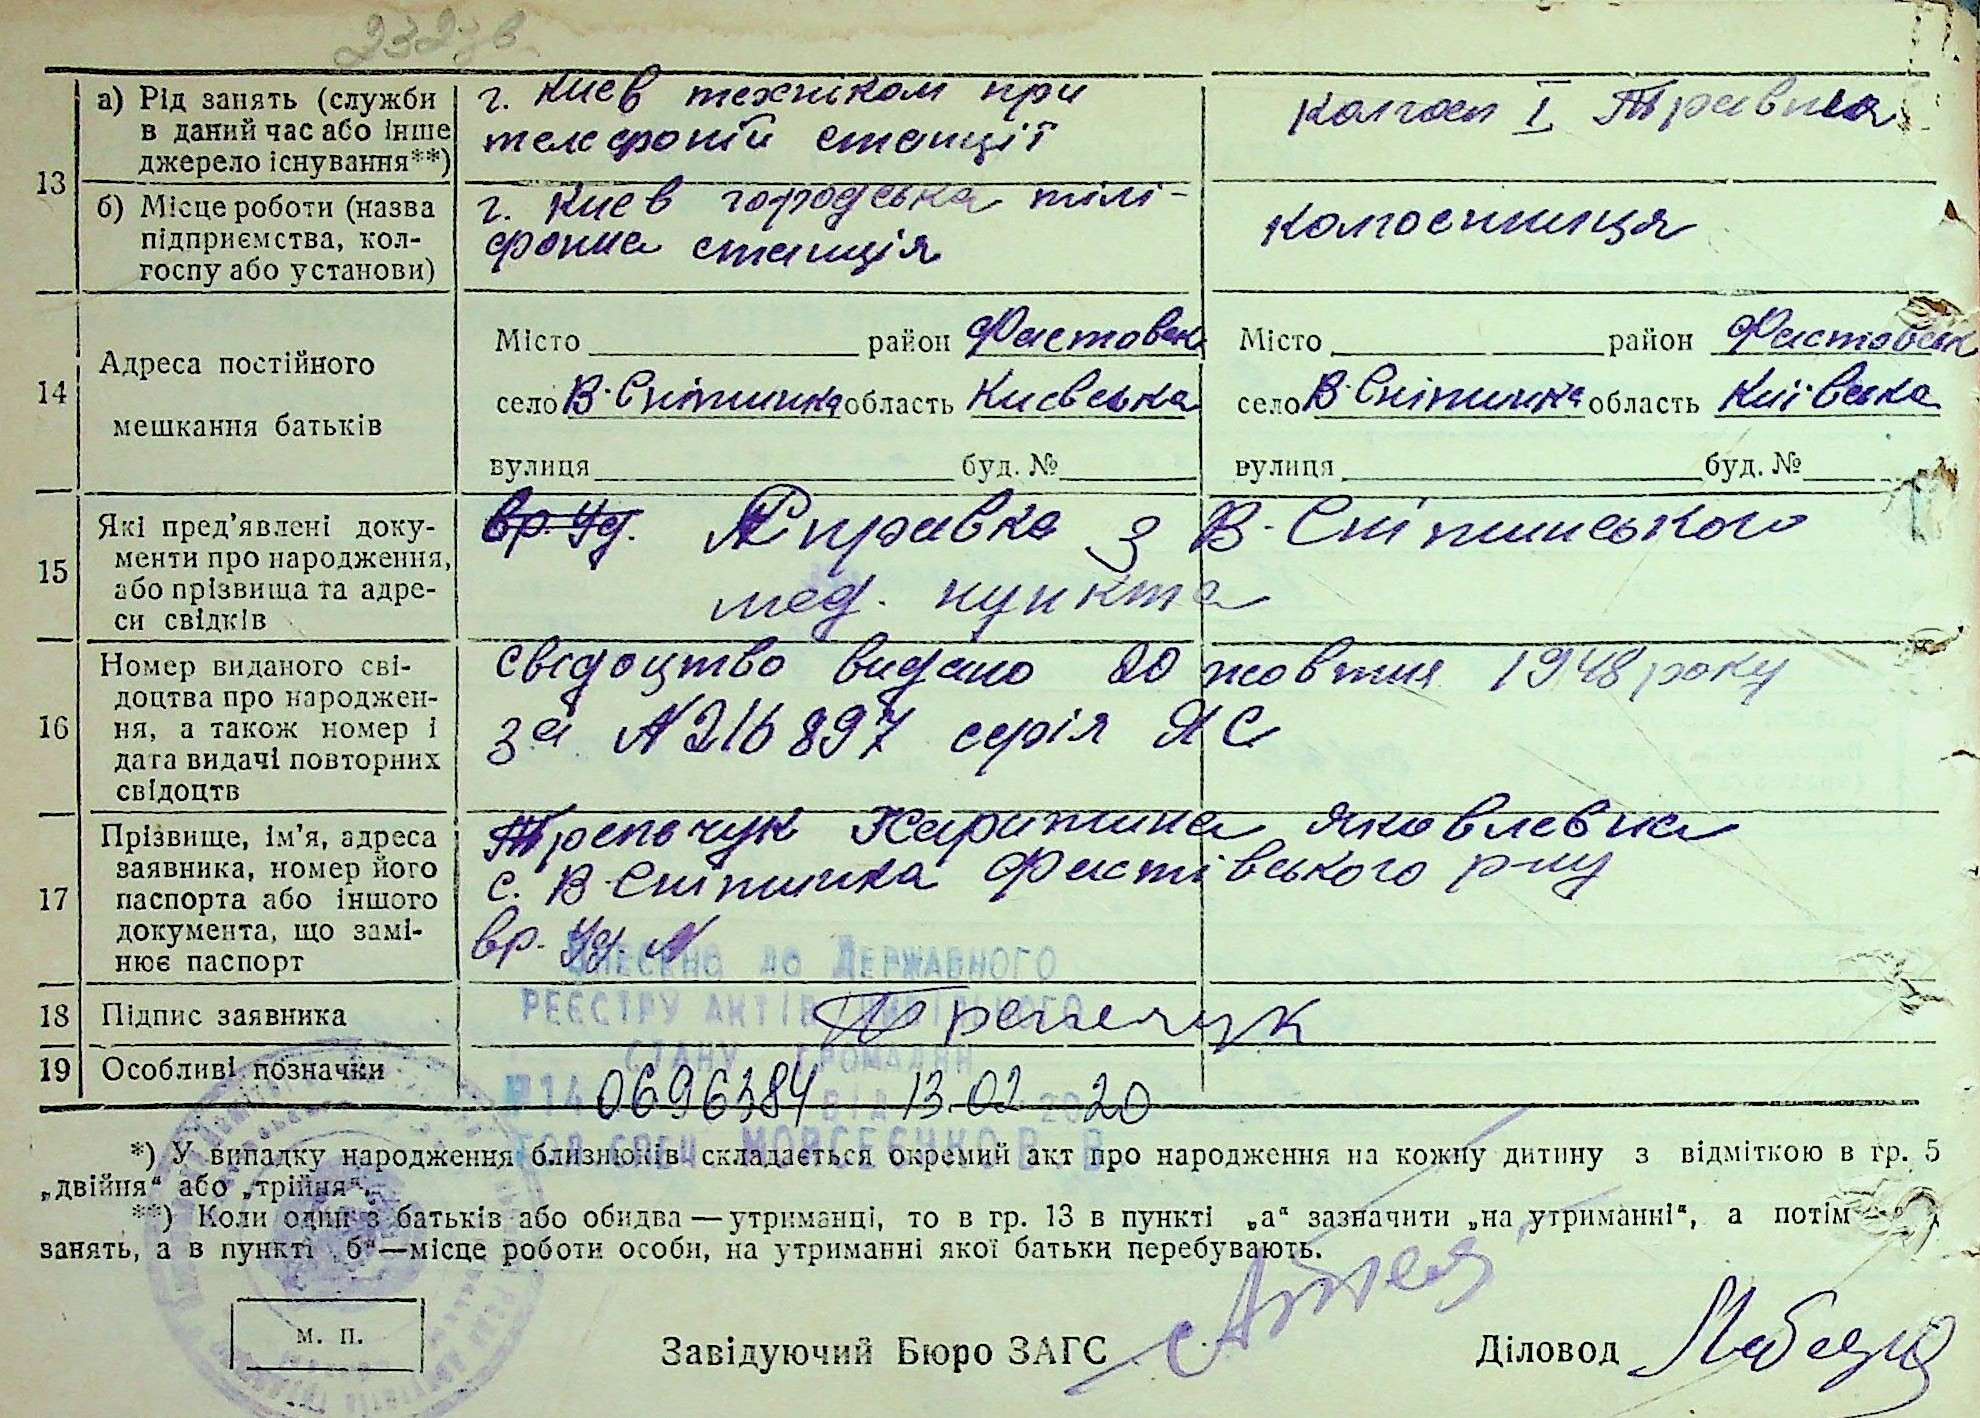 232
13
а) Рід занять (служби в даний час або інше джерело існування**)
г. Киев техніком при
телефоній станції
колгосп I Травня
б) Місце роботи (назва підприємства, колгоспу або установи)
г. Киев городська тілі-
фонна станція
колгоспниця
14
Адреса постійного
мешкання батьків
Місто район Фастовськ
село В-Снітинка область Киевська
вулиця буд. №
Місто район Фастовськ
село В-Снітинка область Київська
вулиця буд. №
15
Які пред'явлені доку-
менти про народження,
або прізвища та адре-
си свідків
вр. уд. Справка з В-Снітинського
мед. пункта
16
Номер виданого сві-
доцтва про народжен-
ня, а також номер і
дата видачі повторних
свідоцтв
свідоцтво видано 20 жовтня 1948 року
за № 216897 серія ЯС
17
Прізвище, ім'я, адреса
заявника, номер його
паспорта або іншого
документа, що замі-
нює паспорт
Харитина Яковлевна
с. В-Снітинка Фастівського р-ну
вр. уд. №
Внесено до Державного
реєстру актів цивільного
стану громадян
18
Підпис заявника
19
Особливі позначки
№14 0696384 від 13.02 2020
гол. спец. Мойсеєнко В. В.
*) У випадку народження близнюків складається окремий акт про народження на кожну дитину з відміткою в гр. 5
„двійня“ або „трійня“.
**) Коли один з батьків або обидва — утриманці, то в гр. 13 в пункті „а“ зазначити „на утриманні“, а потім
занять, а в пункті „б“—місце роботи особи, на утриманні якої батьки перебувають.
м. п.
Завідуючий Бюро ЗАГС
Діловод